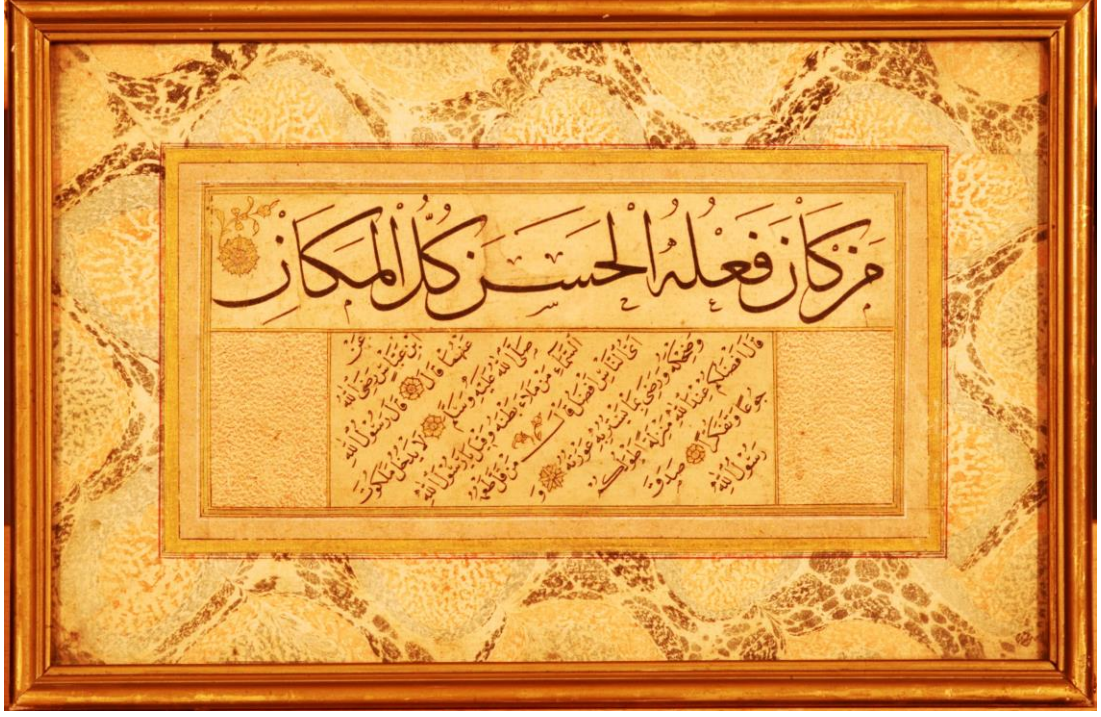 مَنْ كَانَ فِعْلُهُ الْحَسَنَ كُلُّ الْمَكَانِ
عن
ابن عباس رضى الله
عنهما قال قال رسول الله
صلى الله عليه وسلم لا يدخل ملكوت
السماء من ملاء بطنه وقيل يا رسول الله
اى الناس افضل قال من قل طعمه
وضحكه ورضى بما يستر به عورته و
قال افضلكم عند الله منزلة اطولكم
جوعا وتفكرا صدق
رسول الله